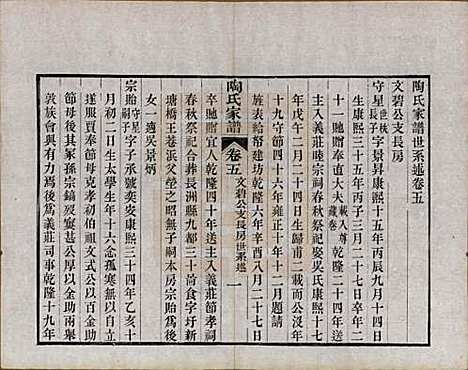 陶氏家譜世系述卷五
文碧公支長房
守星 世秋長子 字景昇康熙十五年丙辰九月十四日
生康熙三十五年丙子三月二十七日卒年二
十一貤贈奉直大夫 載入尊藏卷 乾隆二十四年送
主入義莊睦宗祠春秋祭祀娶吳氏康熙十一
年戊午二月二十四日生歸甫二載而公沒年
十九守節四十六年雍正十年十二月題請
旌表給帑建坊乾隆六年辛酉八月二十七日
陶氏家譜
卷五
文碧公支長房世系述
一
卒貤贈宜人乾隆四十年送主入義莊節孝祠
春秋祭祀合葬長洲縣九都二十一圖食字圩新
塘橋王巷浜父塋之昭無子以弟木房宗貽爲後
女一適吳景炳
宗貽 守星子 字子承號奕安康熙三十四年乙亥十
月初二日生太學生年十六念孤寒無以自立
遂服賈奉節母克孝初伯祖文式公以百金助
節母後其家孫宗鎬浸寠甚公厚以金兩舉
敦族會興有功爲義莊司事乾隆十九年